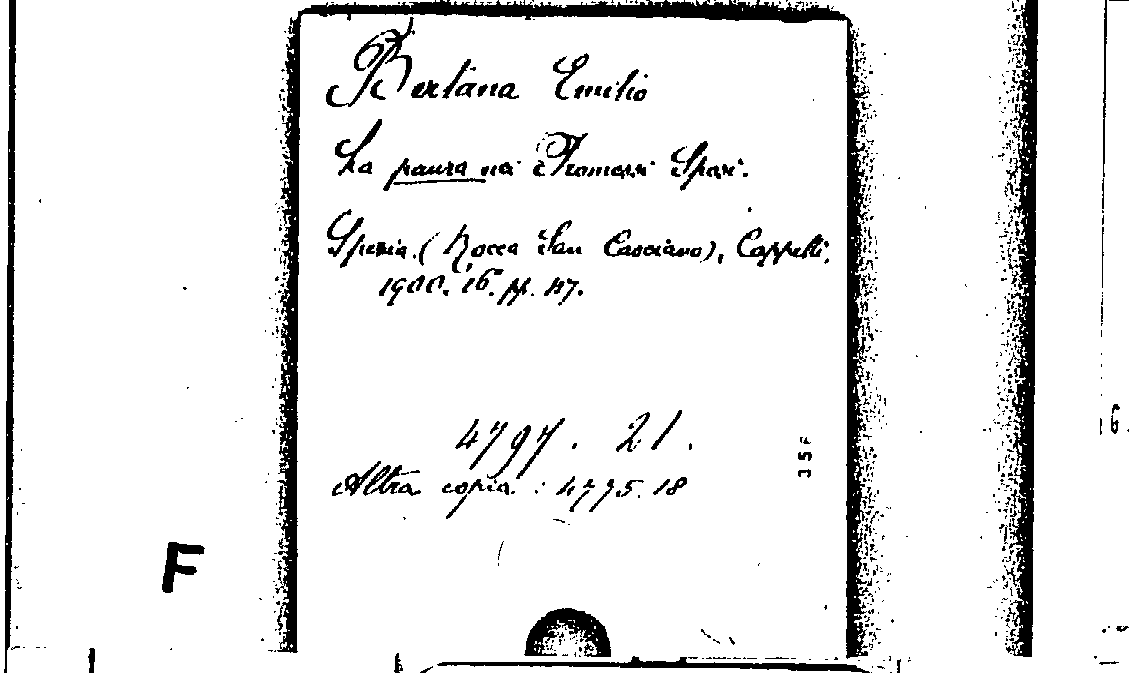 Bertana Emilio
La paura nei Promessi Sposi.
Spezia. (Rocca San Casciano), Cappelli,
1900. 16º. pp. 47.
4797. 21.
Altra copia: 4775. 18
15F
F